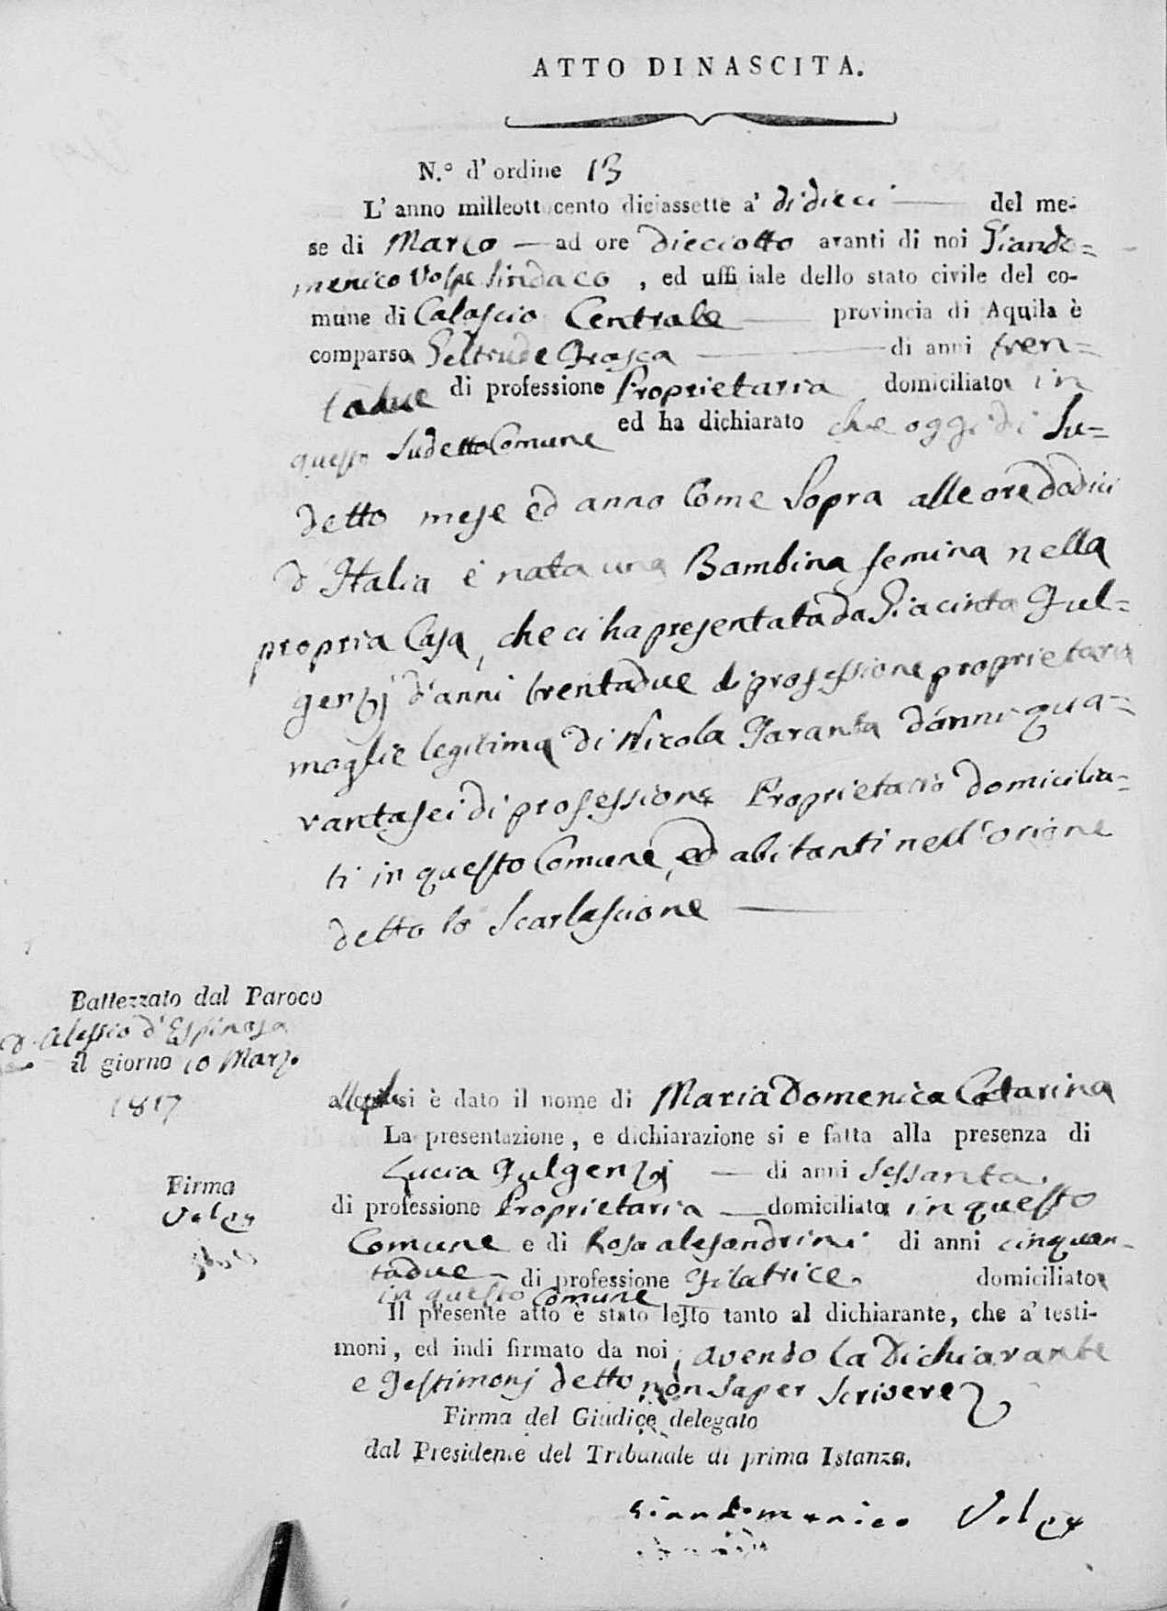 ATTO DI NASCITA.
N.º d'ordine 13
L'anno milleottocento diciassette a' dì dieci del me-
se di Marzo — ad ore dieciotto avanti di noi Giando=
menico Volpe Sindaco , ed uffiiale dello stato civile del co-
mune di Calascio Centrale provincia di Aquila è
comparsa Geltrude Frasca di anni tren=
tadue di professione Proprietaria domiciliata in
questo Sudetto Comune ed ha dichiarato che oggi dì Su=
detto mese ed anno Come Sopra alle ore dodici
d'Italia è nata una Bambina femina nella
propria Casa, che ci ha presentata da Giacinta Ful=
genzj d'anni trentadue di professione proprietaria
moglie legitima di Nicola Taranta d'anni qua=
rantasei di professione Proprietario domicilia=
ti in questo Comune, ed abitanti nell'orione
detto lo Scarlascione
Battezzato dal Paroco
D. Alessio d'Espinosa
il giorno 10 Marz.
1817
alla quale si è dato il nome di Maria Domenica Catarina
La presentazione, e dichiarazione si e fatta alla presenza di
Lucia Fulgenzj — di anni Sessanta.
di professione Proprietaria — domiciliata in questo
Comune e di Rosa alesandrini di anni cinquan-
tadue di professione Filatrice. domiciliata
in questo Comune
Il presente atto è stato letto tanto al dichiarante, che a' testi-
moni, ed indi firmato da noi, avendo la Dichiarante
e Testimonj detto non Saper Scrivere
Firma
Volpe
Firma del Giudice delegato
dal Presidente del Tribunale di prima Istanza.
Giandomenico Volpe